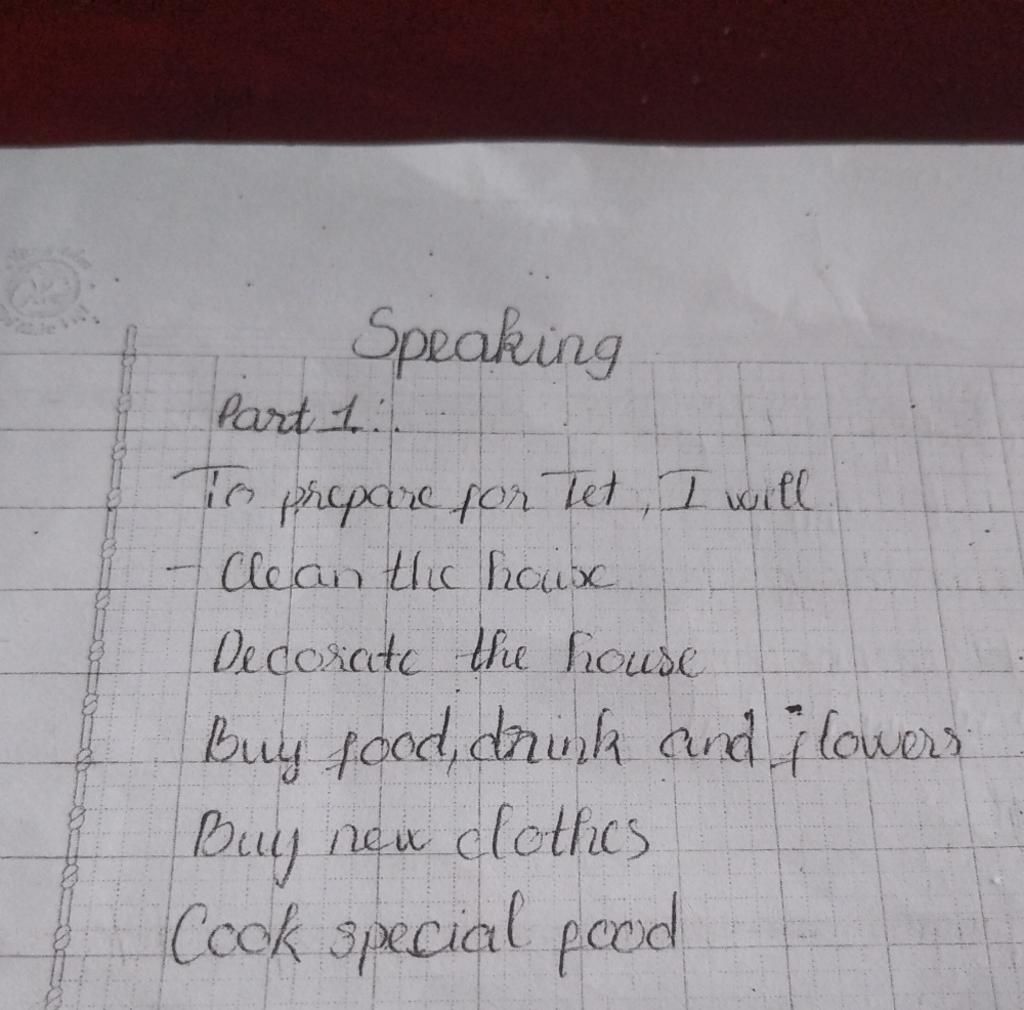 Speaking
Part 1:.
To prepare for Tet, I will
- Clean the house
Decorate the house
Buy food, drink and flowers
Buy new clothes
Cook special food